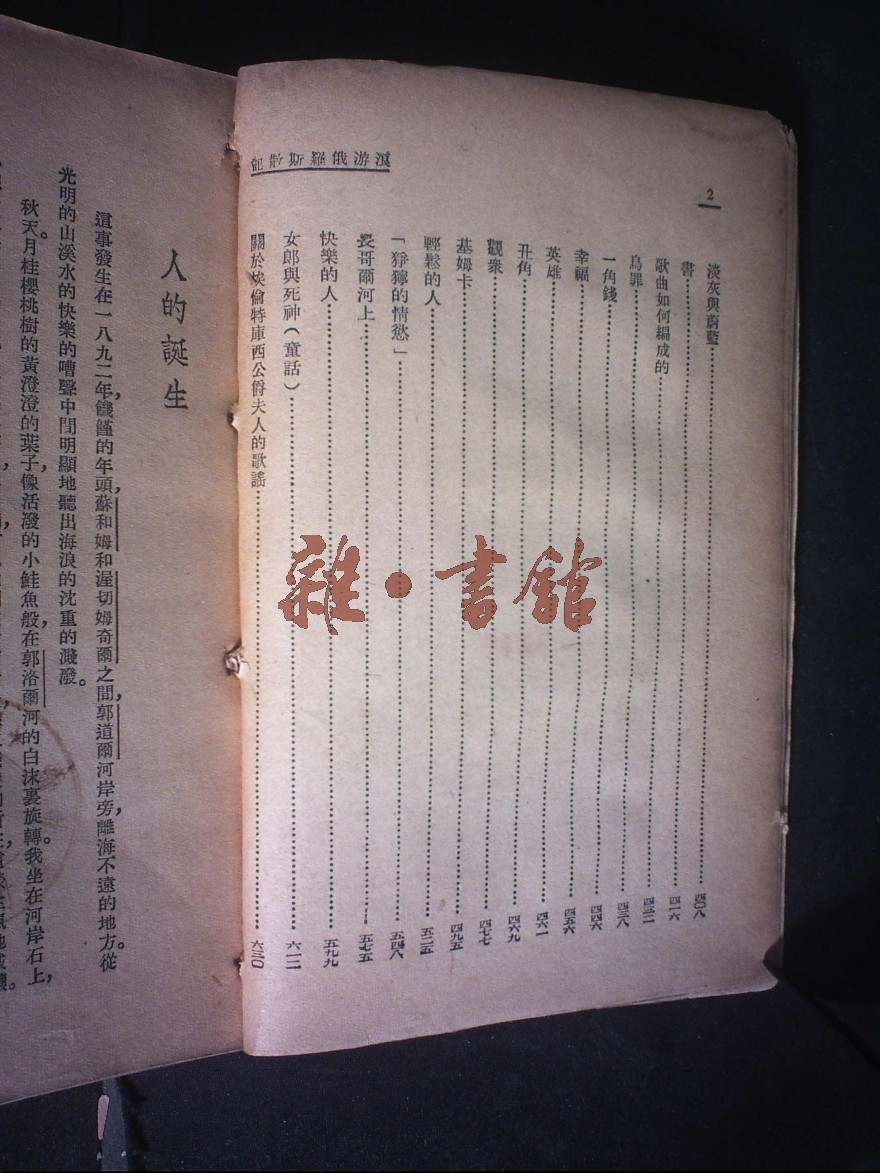 2
淡灰與蔚藍 四〇八
書 四一六
歌曲如何編成的 四三二
鳥罪 四三八
一角錢 四四六
幸福 四五六
英雄 四六一
丑角 四六九
觀衆 四七七
基姆卡 四九五
輕鬆的人 五二五
「猙獰的情慾」 五四八
長哥爾河上 五七五
快樂的人 五九九
女郎與死神(童話) 六一二
關於埃倫特庫西公爵夫人的歌謠 六三〇
漫游俄羅斯散記
雜·書館
人的誕生
這事發生在一八九二年,饑饉的年頭,蘇和姆和渥切姆奇爾之間,郭道爾河岸旁,離海不遠的地方。從
光明的山溪水的快樂的嘈聲中間明顯地聽出海浪的沈重的濺潑。
秋天。月桂櫻桃樹的黃澄澄的葉子,像活潑的小鮭魚般,在郭洛爾河的白沫裏旋轉。我坐在河岸石上,